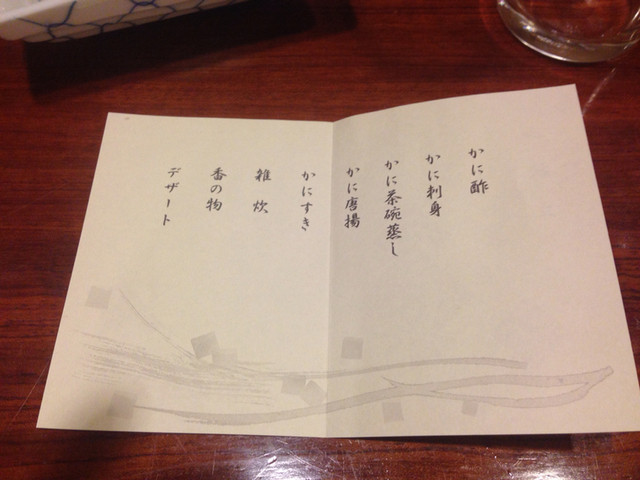 かに酢
かに刺身
かに茶碗蒸し
かに唐揚
かにすき
雑炊
香の物
デザート